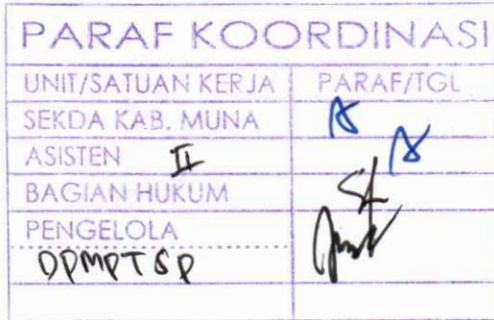 PARAF KOORDINASI
UNIT/SATUAN KERJA PARAF/TGL
SEKDA KAB. MUNA
ASISTEN II
BAGIAN HUKUM
PENGELOLA
DPMPTSP